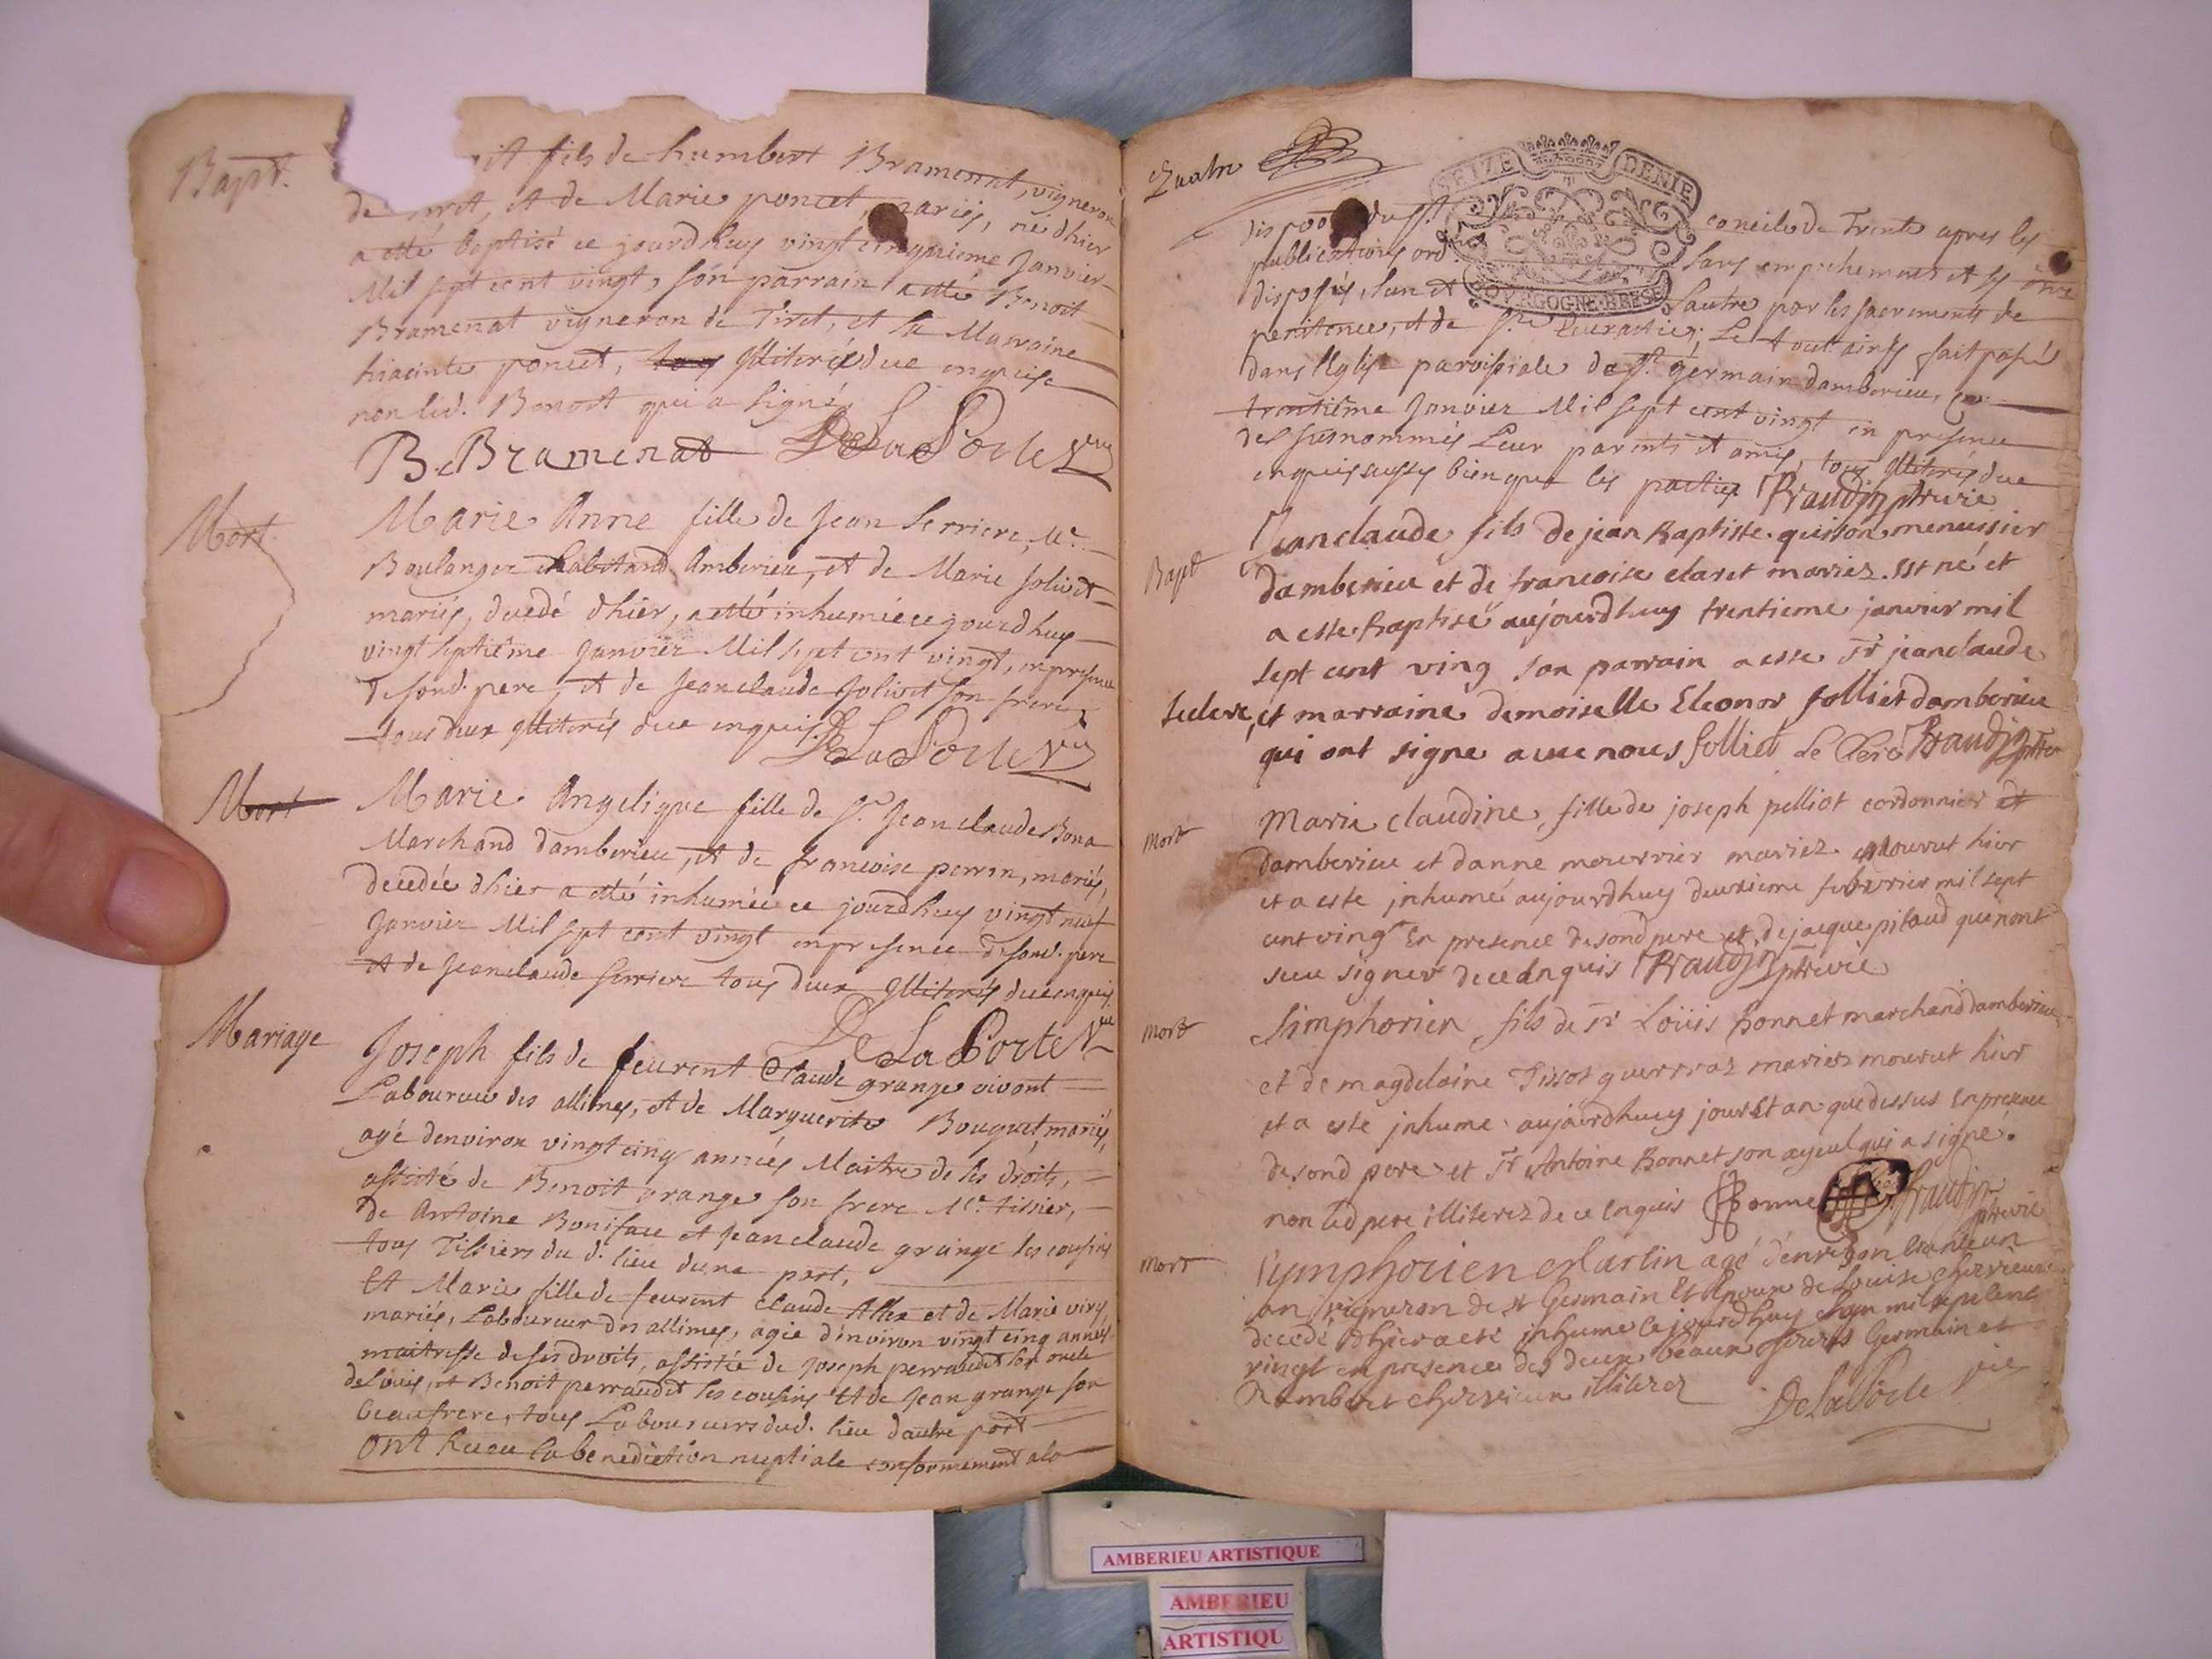 Bapt.
it fils de humbert Bramenat, vigneron
de et de Marie poncet, mariés, né dhier
a etté baptisé ce jourdhuy vingt cinquieme Janvier
Mil sept cent vingt, son parrain a etté Benoit
Bramenat vigneron de Tiret, et la Marraine
hiacinte poncet, illiterés de ce enquise
non led. Benoit qui a signé
B. Bramenat De La Porte
Mort
Marie Anne fille de Jean Serriere, Me
Boulanger habitand Amberieu, et de Marie Jolivet
mariés, decedé dhier, a etté inhumée ce jourdhuy
vingt septiême Janvier Mil sept cent vingt, en presence
de sond. pere, et de Jeanclaude Jolivet son frere
tous deux illiterés de ce enquis De La Porte
Mort
Marie Angelique fille de Sr. Jeanclaude Bona
Marchand damberieu, et de francoise perrin, mariés,
decedée dhier a etté inhumée ce jourdhuy vingt neuf
Janvier Mil sept cent vingt en presence de sond. pere
et de Jeanclaude Serriere tous deux illiterés de ce enquis
De La Porte
Mariage
Joseph fils de feurent Claude grange vivant
Laboureur des allimes, et de Marguerite Bouquet, mariés,
agé denviron vingt cinq années Maitre de ses droits,
assisté de Benoit grange son frere Me. tissier,
de Antoine Boniface et Jeanclaude grange ses cousins
tous Tissiers du d. lieu dune part,
Et Marie fille de feurent Claude et de Marie viry
mariés, Laboureur des allimes, agée denviron vingt cinq années
maitresse de ses droits, assistée de Joseph perraudet son oncle
de Louis, et Benoit perraudet ses cousins et de Jean grange son
beaufrere, tous Laboureurs dud. lieu dautre part
Ont Receu la benediction nuptiale conformement a la
Quatre
SEIZE DENIE
BOURGOGNE BRESSE
du St. concile de Trente apres les
publications ord. sans empechement et
disposés, lun et lautre par les sacrements de
penitence, et de Ste. Eucaristie; Le tout ainsy fait passé
dans l'Eglise paroissiale de St. germain damberieu, ce
trentiême Janvier Mil sept cent vingt en presence
des susnommés Leur parents et amis, tous illiterés de ce
enquis aussy bien que les parties Braudin ptre vic
Bapt
Jeanclaude fils de jean Baptiste quison menuisier
damberieu et de francoise claret mariez. est né et
a este baptisé aujourdhuy trentieme janvier mil
sept cent ving son parrain a esse Sr jeanclaude
leclerc, et marraine demoiselle Eleonor folliet damberieu
qui ont signe avec nous folliet Le Clerc Braudin ptre
Mort
Marie claudine, fille de joseph pelliot cordonnier
damberieu et danne mourrier mariez mourut hier
et a este jnhumé aujourdhuy deuxieme febvrier mil sept
cent ving En presence de sond pere et de jacque pitaud que nont
sceu signer de ce Enquis Braudin ptre vic
mort
Simphorien fils de Sr Loüis Bonnet marchand damberieu
et de magdelaine Tissot guerraz mariez mourut hier
et a este jnhume aujourdhuy jour et an que dessus En presence
de sond pere et Sr Antoine Bonnet son ayeul qui a signé.
non led pere illiterez de ce Enquis Bonnet Braudin
ptre vic
mort
Symphorien Martin agé d'environ
an vigneron de st Germain Et Epoux de Louise chervieux
decedé dhier a eté inhume ce jourdhuy mil sept cent
vingt en presence des deux beaux freres Germain et
Rambert chervieux illiterez
De la Porte vic
AMBERIEU ARTISTIQUE
AMBERIEU
ARTISTIQU